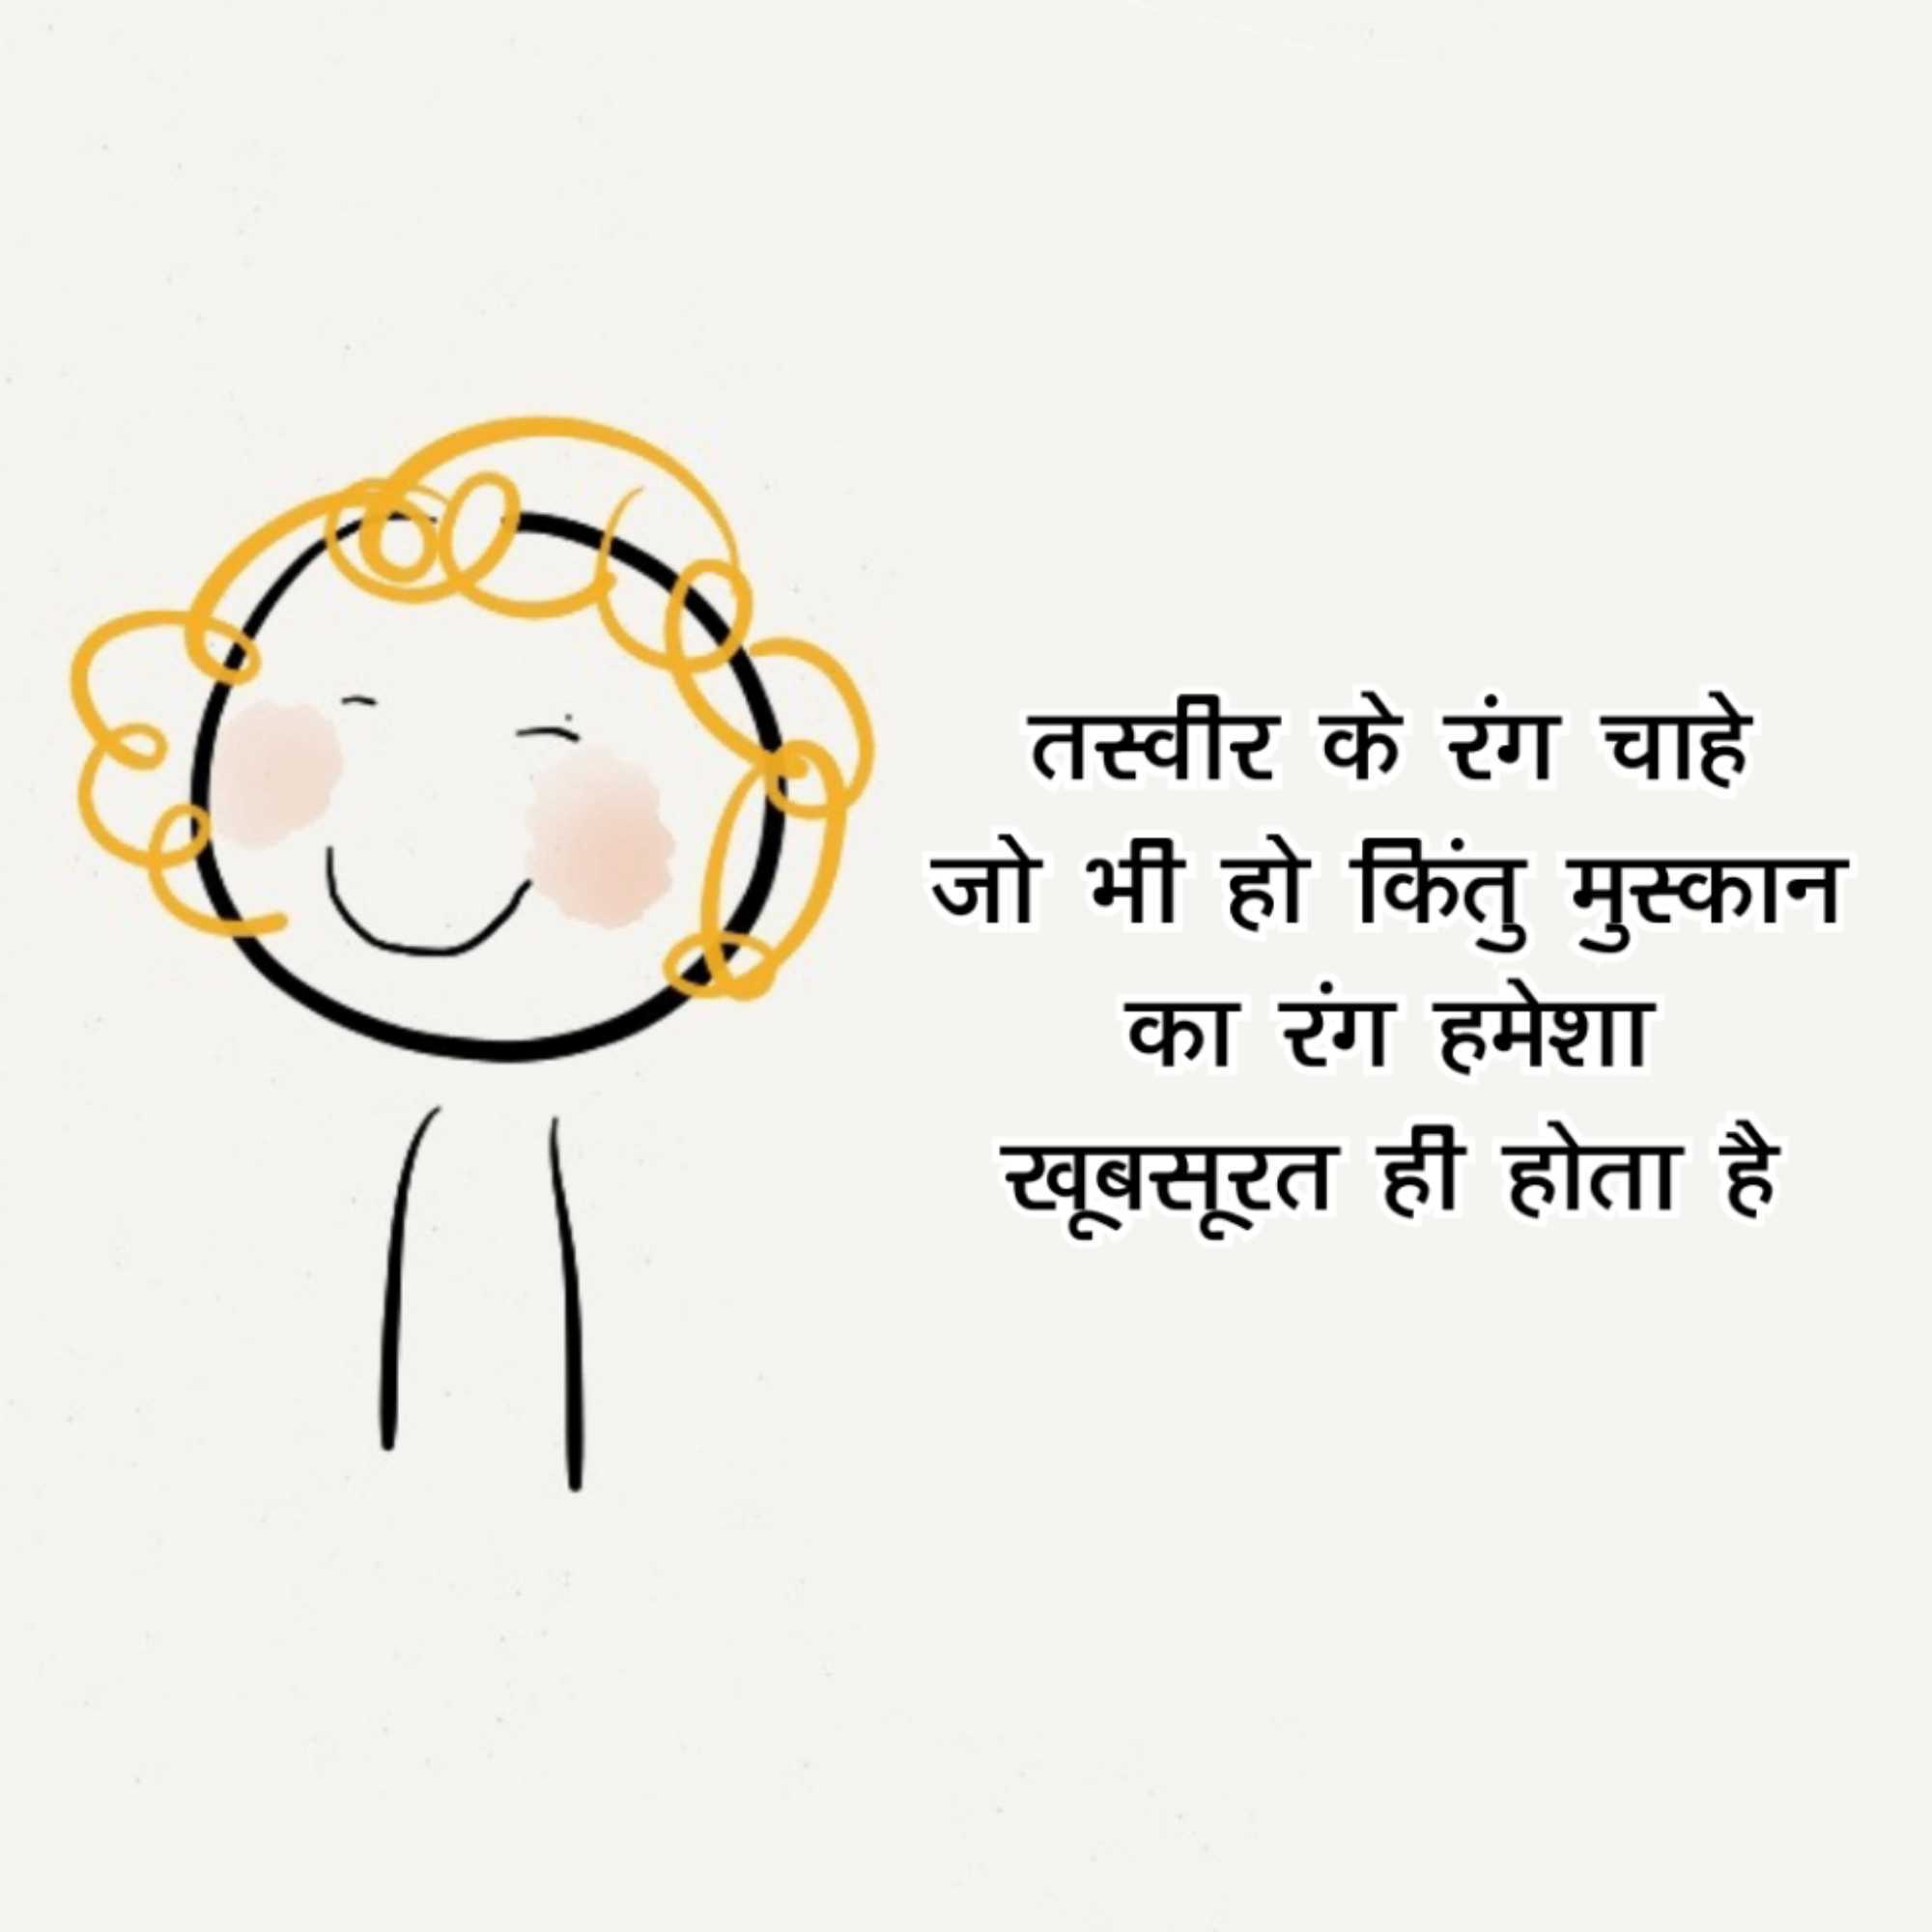 तस्वीर के रंग चाहे
जो भी हो किंतु मुस्कान
का रंग हमेशा
खूबसूरत ही होता है